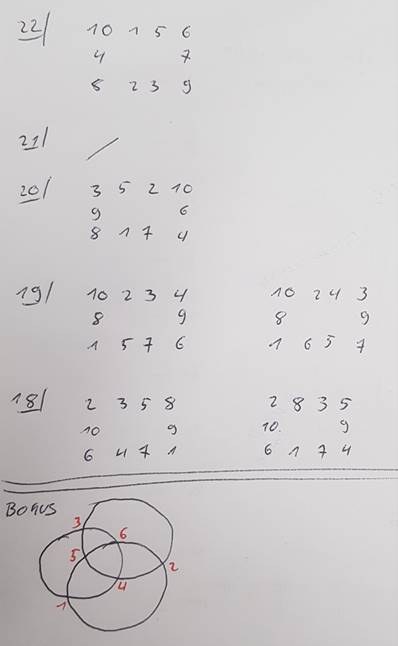 22/ 10 1 5 6
4 7
8 2 3 9
21/ /
20/ 3 5 2 10
9 6
8 1 7 4
19/ 10 2 3 4 10 2 4 3
8 9 8 9
1 5 7 6 1 6 5 7
18/ 2 3 5 8 2 8 3 5
10 9 10 9
6 4 7 1 6 1 7 4
BONUS
3 6
5
4 2
1